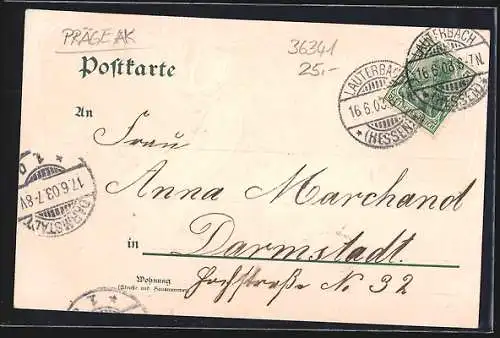 PRÄGE AK
36341
25.-
Postkarte
LAUTERBACH
16.6.03.6-7N.
*(HESSEN)*
LAUTERBACH
16.6.03
*(HESSEN)
An
Frau
Anna Marchand
in Darmstadt.
Wohnung
(Straße und Hausnummer)
Hochstraße No 32
DARMSTADT
17.6.03.7-8V
* 1